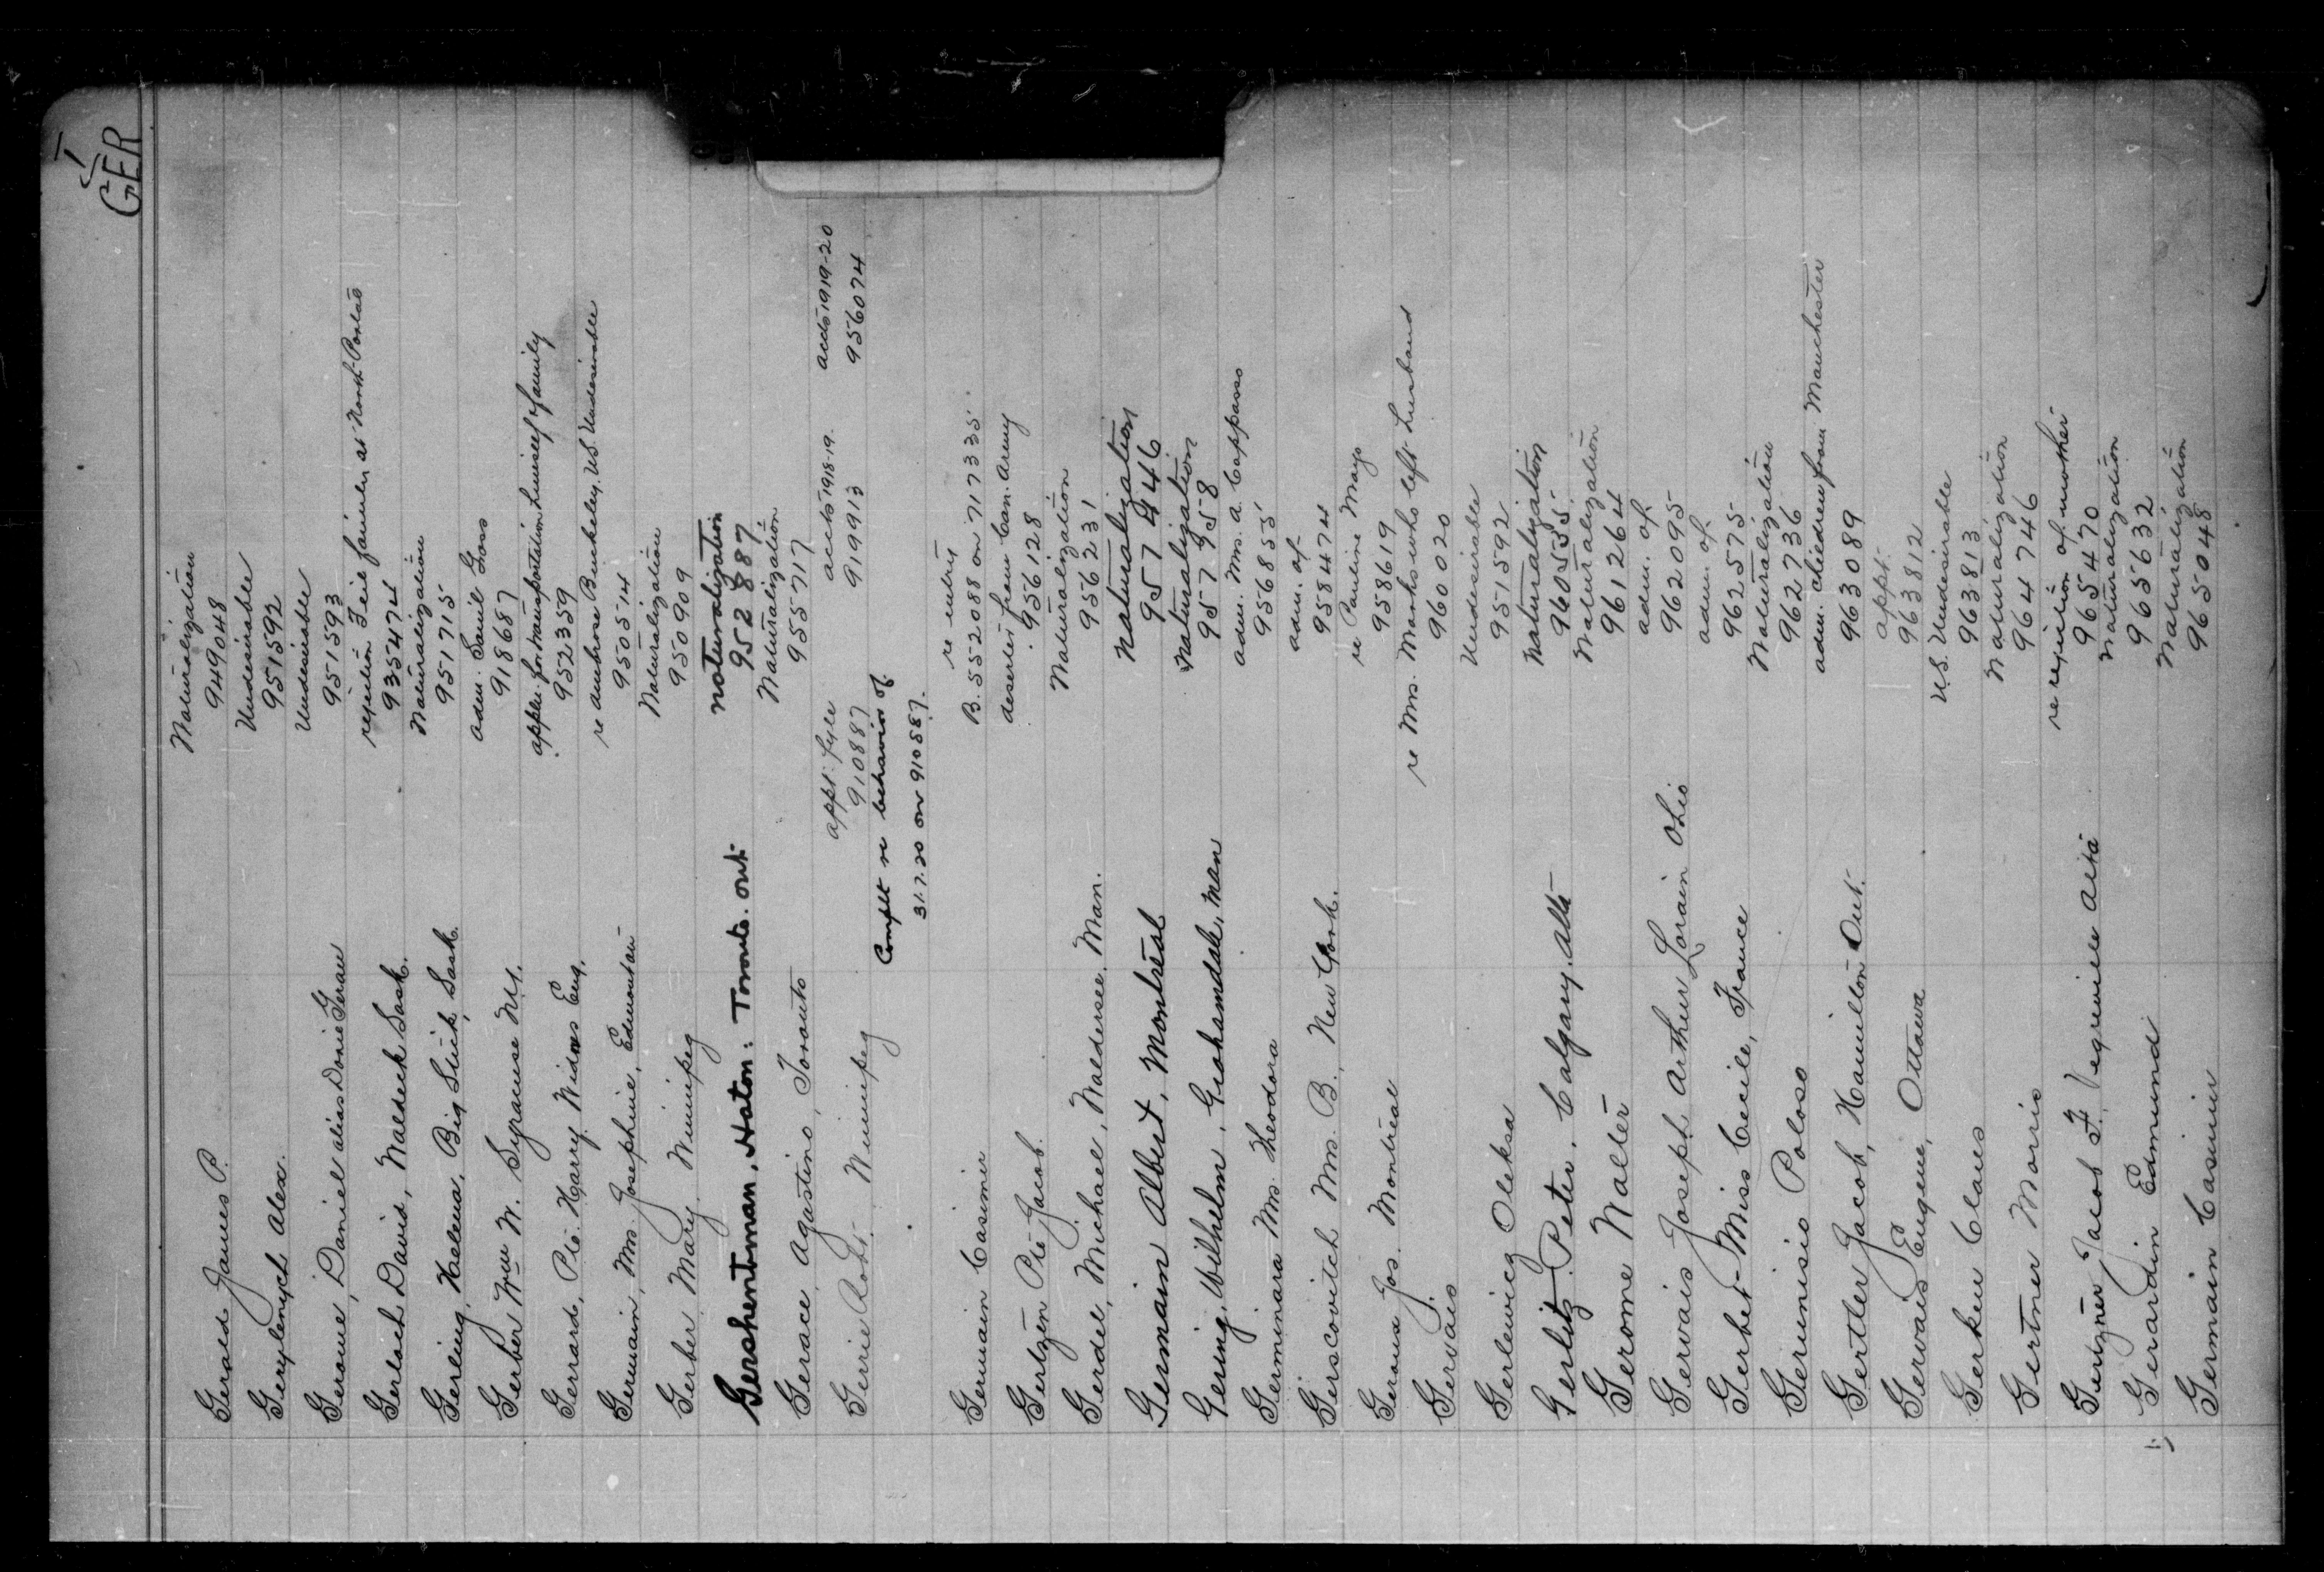 GER
Gerald James P. Naturalization
949048
Gerylenych Alex. Undesirable
951592
Gerome, Daniel alias Donie Gerau Undesirable
951593
Gerlach David, Waldeck Sask. rejection of farmer at North Portal
935474
Gerling, Helena, Big Stick, Sask. Naturalization
951715
Gerber Wm W. Syracuse N.Y. adm. Saml Goss
918687
Gerrard, Pte. Harry, Widnes Eng. appln. for transportation himself & family
952359
Germain, Mrs. Josephine, Edmonton re Ambrose Buckeley, U.S. Undesirable
950514
Gerber Mary. Winnipeg Naturalization
950909
Gershentman, Naton: Toronto. Ont. naturalization
952887
Gerace, Agastino, Toronto Naturalization
955717
Gerrie Robt. Winnipeg appt. fyle accts 1918-19. accts 1919-20
910887 919913 956074
Complt re behavior of
31.7.20 on 910887.
Germain Casimir re entry
B. 552088 on 717335
Gertzen Pte Jacob. deserter from Can. Army
956128
Gerdel, Michael, Waldersee, Man. Naturalization
956231
Germain Albert, Montreal Naturalization
957446
Gering, Wilhelm, Grahamdale, Man Naturalization
957958
Germinara Mrs. Theodora adm. Mrs. A. Cappass
956855
Gerscovitch Mrs. B., New York. adm. of
958474
Gerous Jos. Montreal re Pauline Mayo
958619
Gervais re Mrs. Marks who left husband
960020
Gerlewicz Oleksa Undesirable
951592
Gerlitz. Peter, Calgary. Alta Naturalization
960535
Gerome Walter Naturalization
961264
Gervais Joseph Arthur Lorain Ohio adm. of.
962095
Gerbet Miss Cecile, France adm. of.
962575
Gerunisio Poloso Naturalization
962736
Gertler Jacob, Hamilton Ont. adm. children from Manchester
963089
Gervais Eugene, Ottawa appt.
963812
Gerken Claus U.S. Undesirable
963813
Gertner Morris Naturalization
964746
Gertzner, Jacob F. Vegreville Alta re rejection of mother
965470
Gerardin Edmund Naturalization
965632
Germain Casimir Naturalization
965048